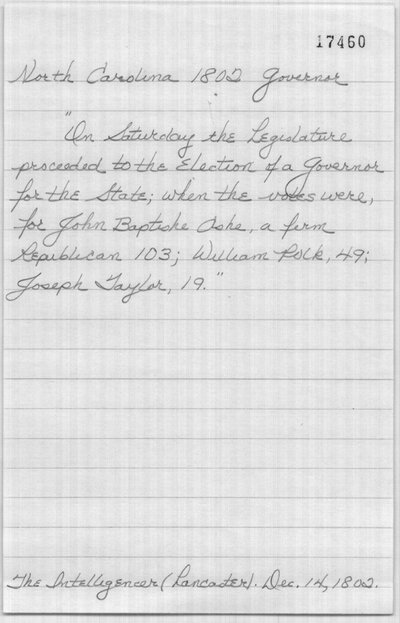 17460
North Carolina 1802 Governor
"On Saturday the Legislature
proceeded to the Election of a Governor
for the State; when the votes were,
for John Baptiste Ashe, a firm
Republican 103; William Polk, 49;
Joseph Taylor, 19."
The Intelligencer (Lancaster). Dec. 14, 1802.